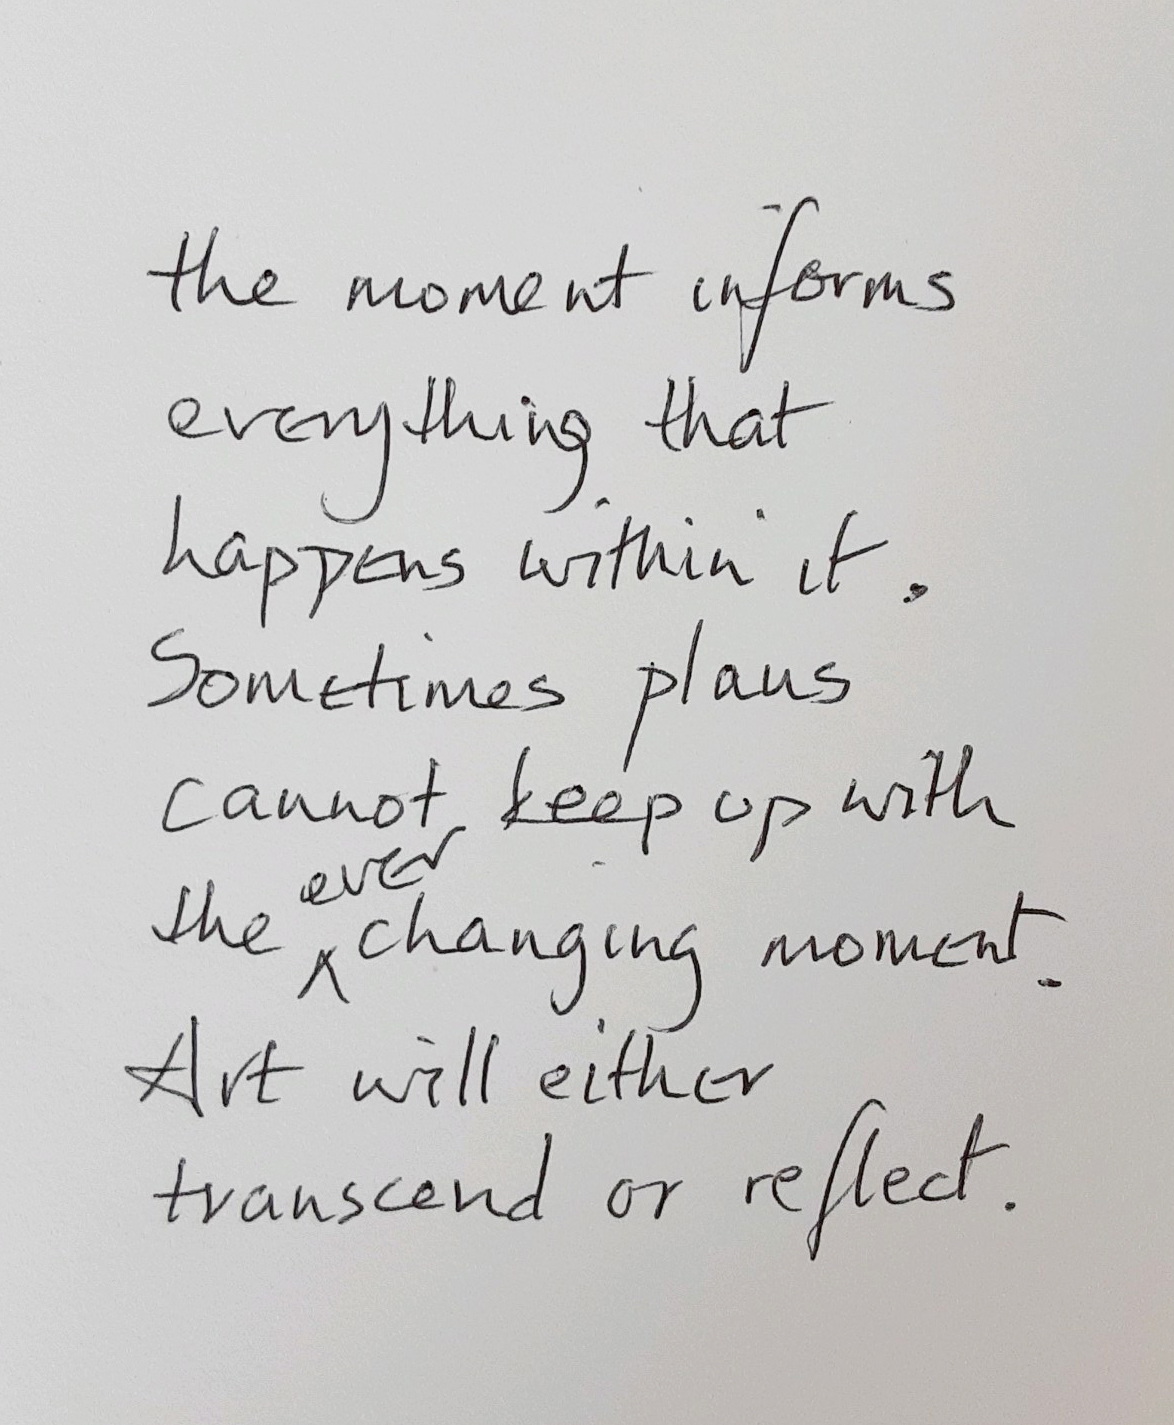 the moment informs
everything that
happens within it.
Sometimes plans
cannot keep up with
the ever changing moment.
Art will either
transcend or reflect.